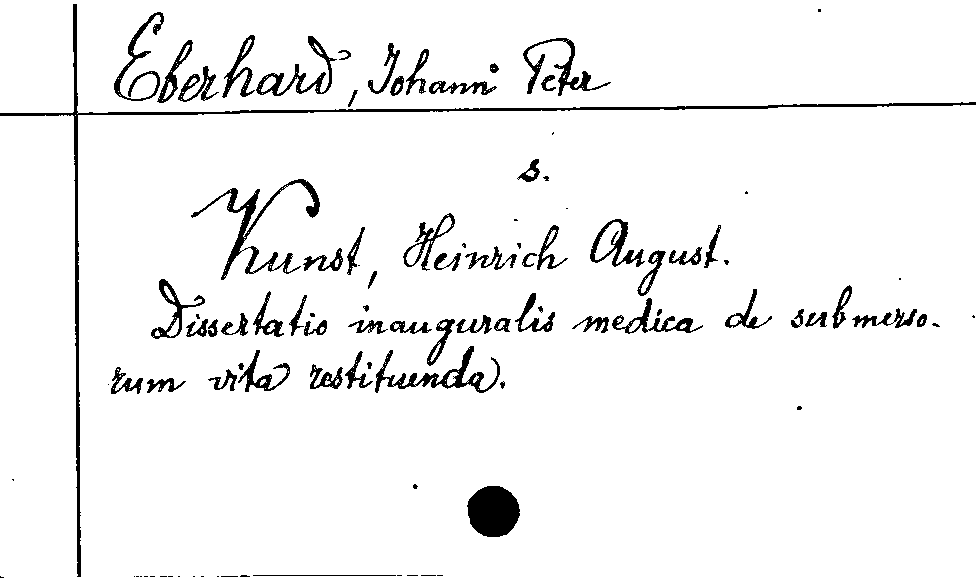 Eberhard, Johann Peter
s.
Kunst, Heinrich August.
Dissertatio inauguralis medica de submerso-
rum vita restituenda.